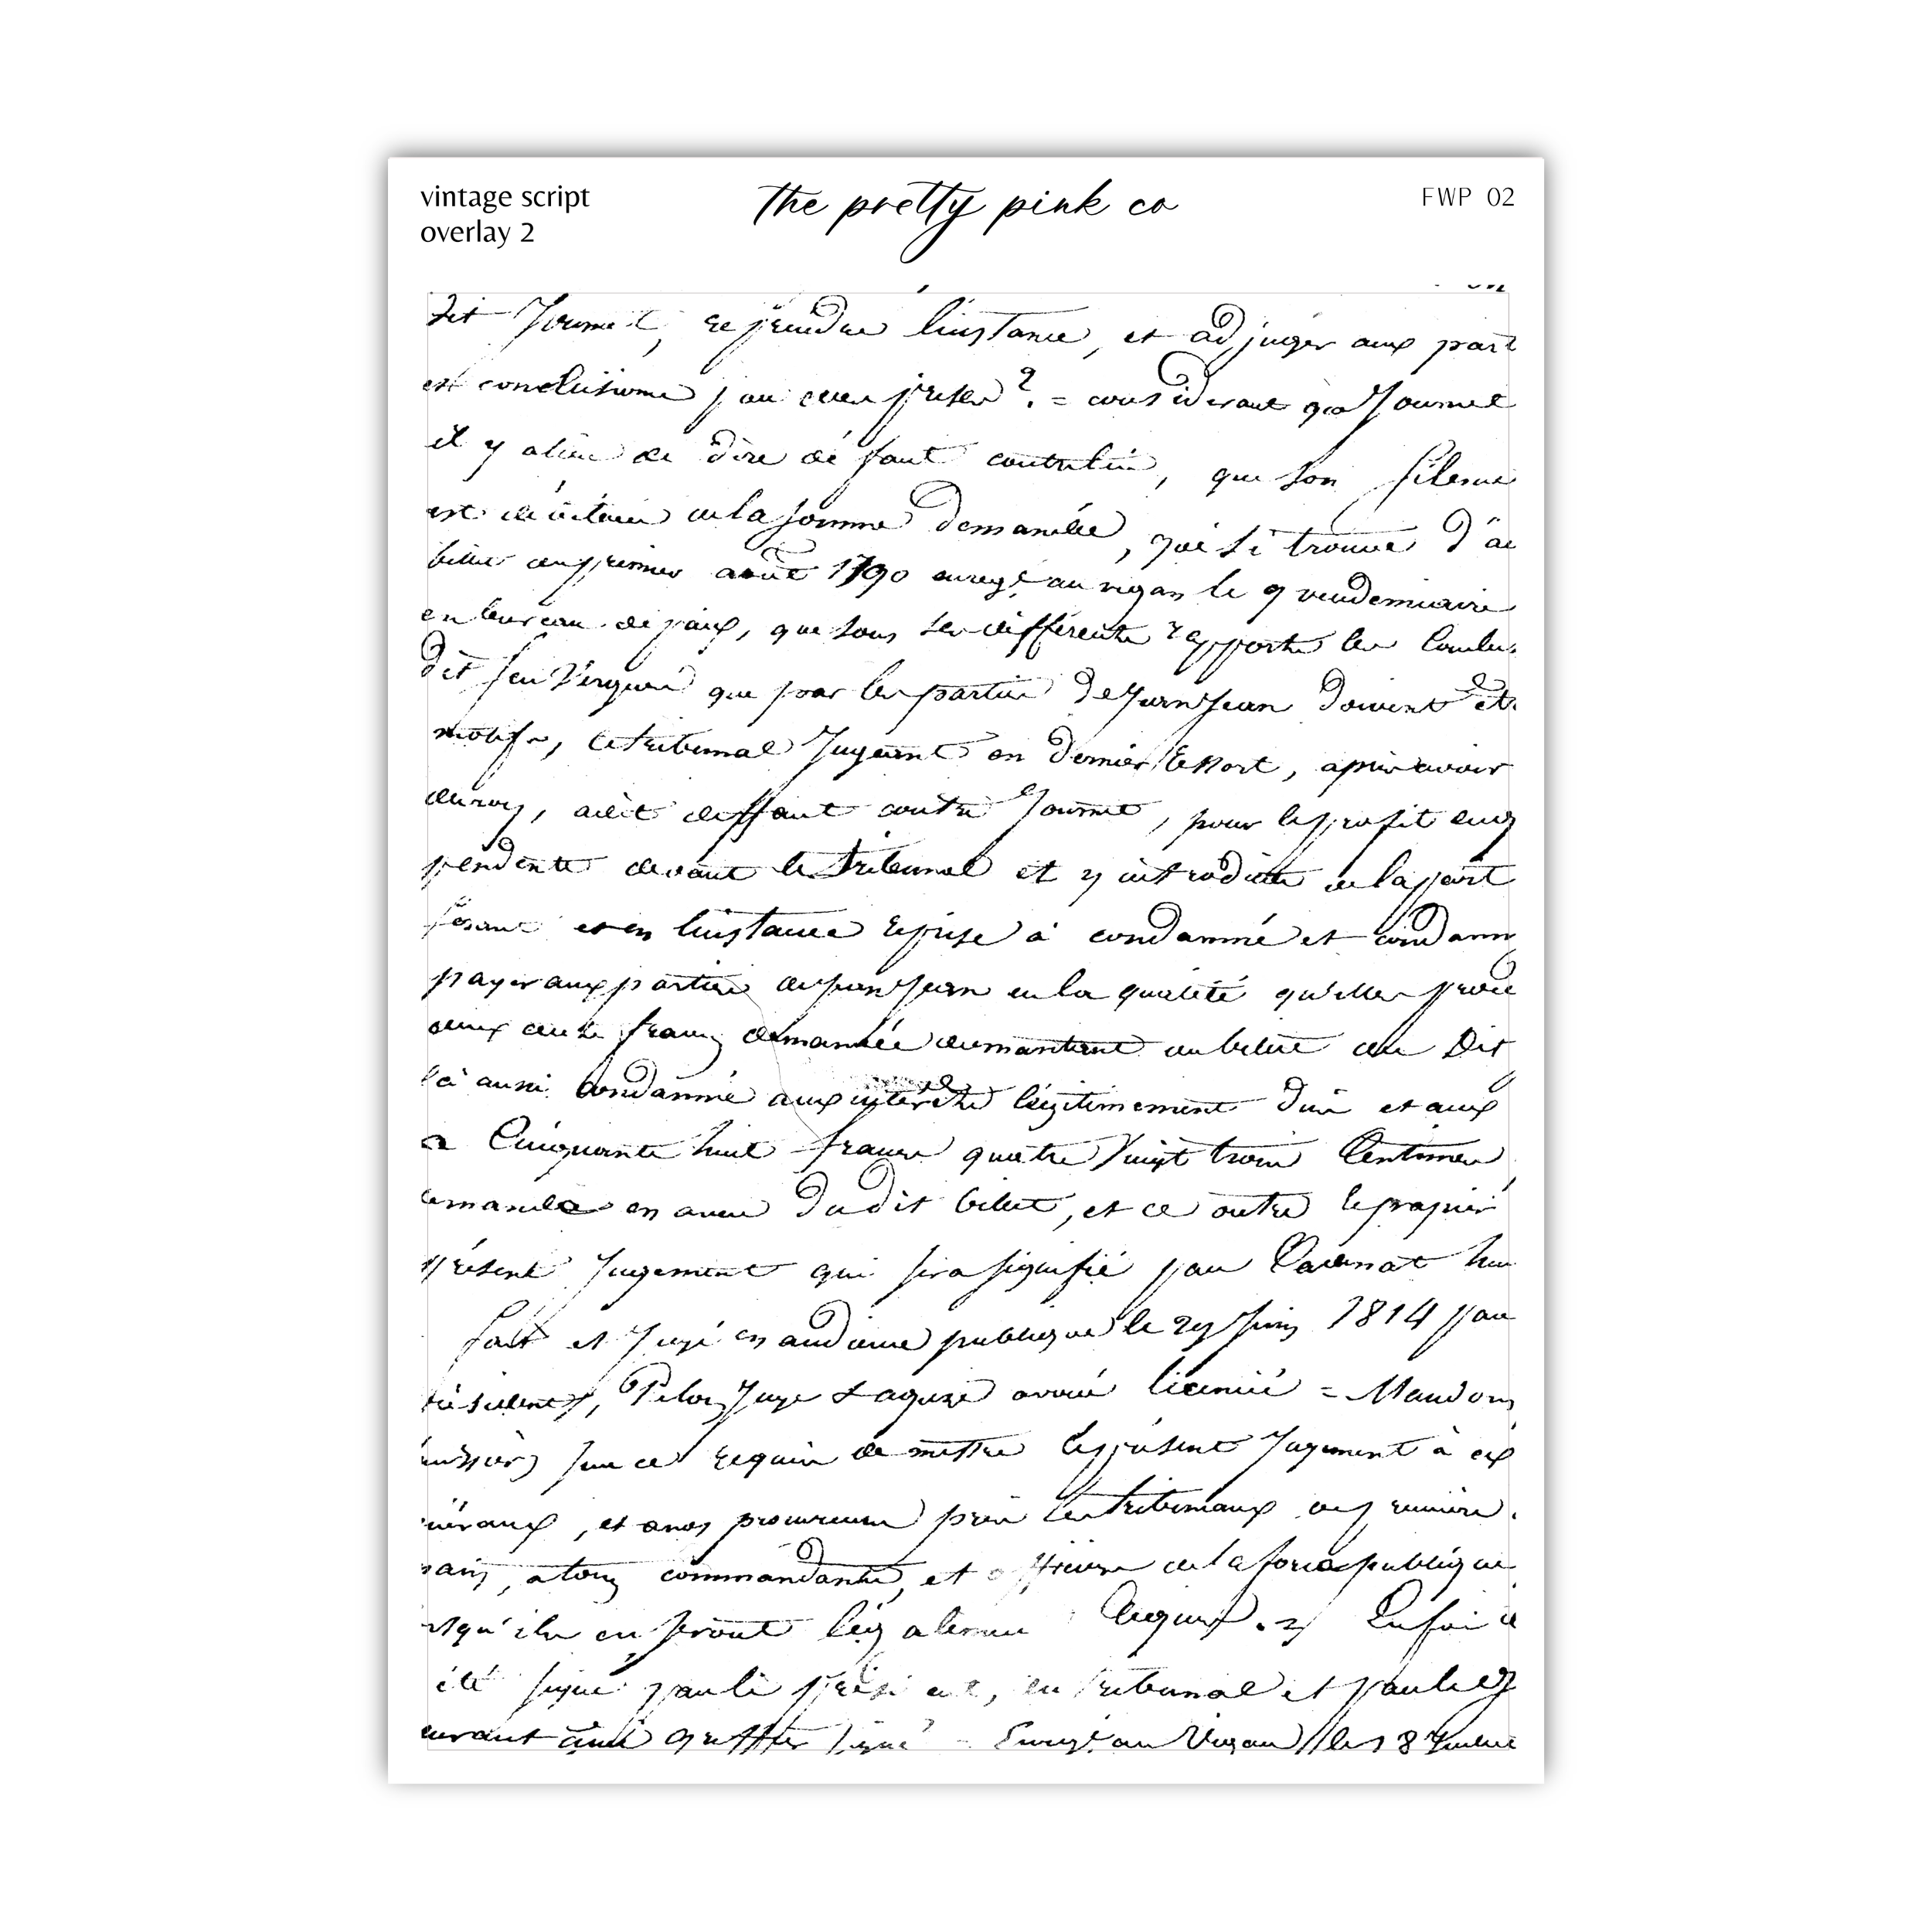 vintage script
overlay 2
the pretty pink co
FWP 02
dit Journet, rejoindre l'instance, et adjuger aux part
conclusions par eux prises ? = considerant que Journet
il y a lieu de dire défaut contre lui, que son silence
est de la somme demandée, qui se trouve d'ai
billet du premier août 1790 enregé au vigan le 9 vendemiaire
en bureau de paix, que sous ses différents rapports les
dit feu que par les parties de doivent et
motifs, le tribunal Jugeant en dernier ressort, après avoir
du roy, a dit deffaut contre Journet, pour le profit
pendente devant le tribunal et y introduite de la part
et en l'instance reprise a condamné et condamn
payer aux parties de en la qualité qu'elles
deux cents francs demandée du montant du billet du Dit
l'a aussi condamné aux intérêts légitimement dus et aux
a Cinquante huit francs quatre vingt trois Centimes
en aveu dudit billet, et ce outre le papier
présent Jugement qui sera signifié par hui
fait et Jugé en audience publique le 29 Juin 1814 par
Juge avoué licencié = Mandons
sur ce requis de mettre le présent Jugement à ex
et a nos procureurs près les tribunaux de premiere
a tous commandants, et officiers de la force publique
rsqu'ils en seront légalement Requis. En foi d
été signé par le président, du tribunal et par le
greffier signé Enregé au Vigan le 8 Juillet